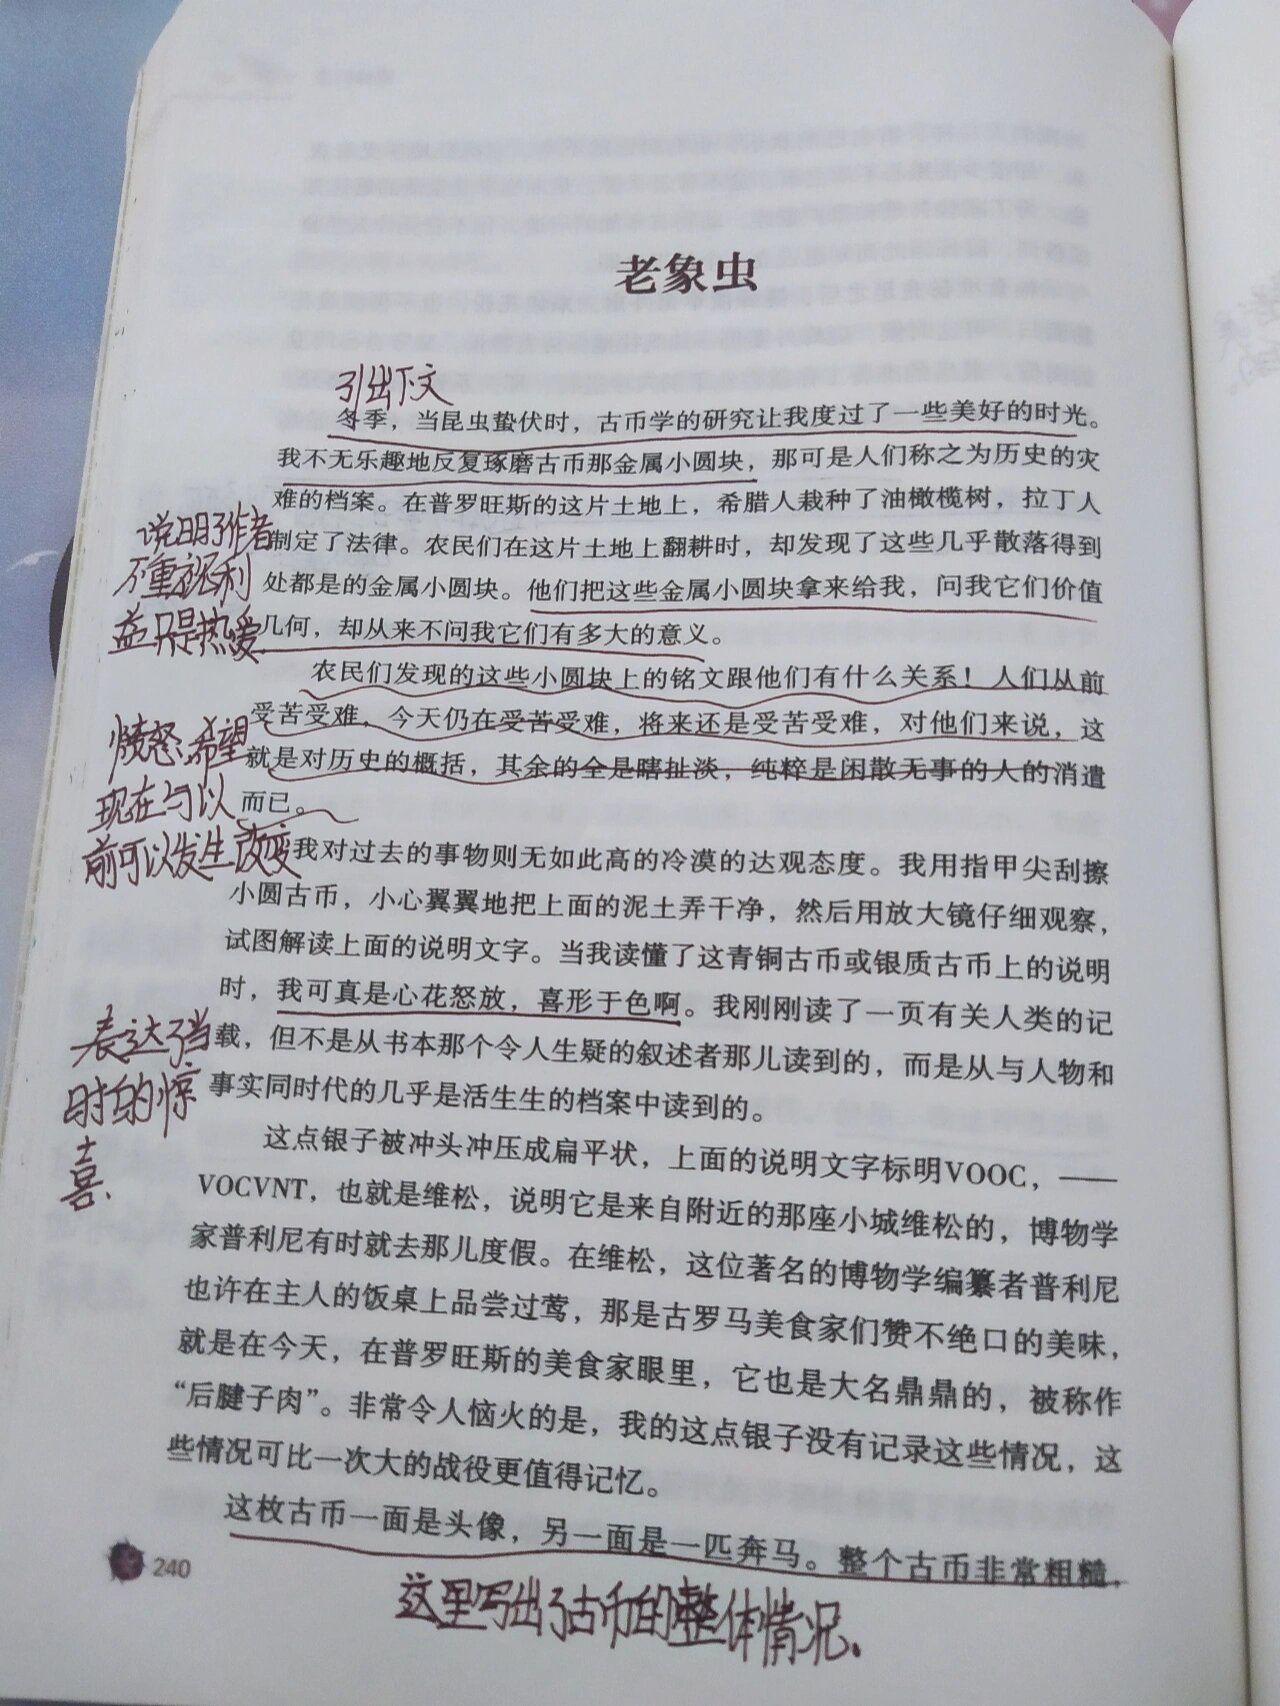 老象虫
引出下文
冬季，当昆虫蛰伏时，古币学的研究让我度过了一些美好的时光。
我不无乐趣地反复琢磨古币那金属小圆块，那可是人们称之为历史的灾
难的档案。在普罗旺斯的这片土地上，希腊人栽种了油橄榄树，拉丁人
制定了法律。农民们在这片土地上翻耕时，却发现了这些几乎散落得到
处都是的金属小圆块。他们把这些金属小圆块拿来给我，问我它们价值
几何，却从来不问我它们有多大的意义。
说明了作者
不重视利
益只是热爱
农民们发现的这些小圆块上的铭文跟他们有什么关系！人们从前
受苦受难，今天仍在受苦受难，将来还是受苦受难，对他们来说，这
就是对历史的概括，其余的全是瞎扯淡，纯粹是闲散无事的人的消遣
而已。
愤怒、希望
现在与以
前可以发生改变
我对过去的事物则无如此高的冷漠的达观态度。我用指甲尖刮擦
小圆古币，小心翼翼地把上面的泥土弄干净，然后用放大镜仔细观察，
试图解读上面的说明文字。当我读懂了这青铜古币或银质古币上的说明
时，我可真是心花怒放，喜形于色啊。我刚刚读了一页有关人类的记
载，但不是从书本那个令人生疑的叙述者那儿读到的，而是从与人物和
事实同时代的几乎是活生生的档案中读到的。
表达了当
时的惊
喜.
这点银子被冲头冲压成扁平状，上面的说明文字标明VOOC，——
VOCVNT，也就是维松，说明它是来自附近的那座小城维松的，博物学
家普利尼有时就去那儿度假。在维松，这位著名的博物学编纂者普利尼
也许在主人的饭桌上品尝过莺，那是古罗马美食家们赞不绝口的美味，
就是在今天，在普罗旺斯的美食家眼里，它也是大名鼎鼎的，被称作
“后腱子肉”。非常令人恼火的是，我的这点银子没有记录这些情况，这
些情况可比一次大的战役更值得记忆。
这枚古币一面是头像，另一面是一匹奔马。整个古币非常粗糙，
240
这里写出了古币的整体情况.